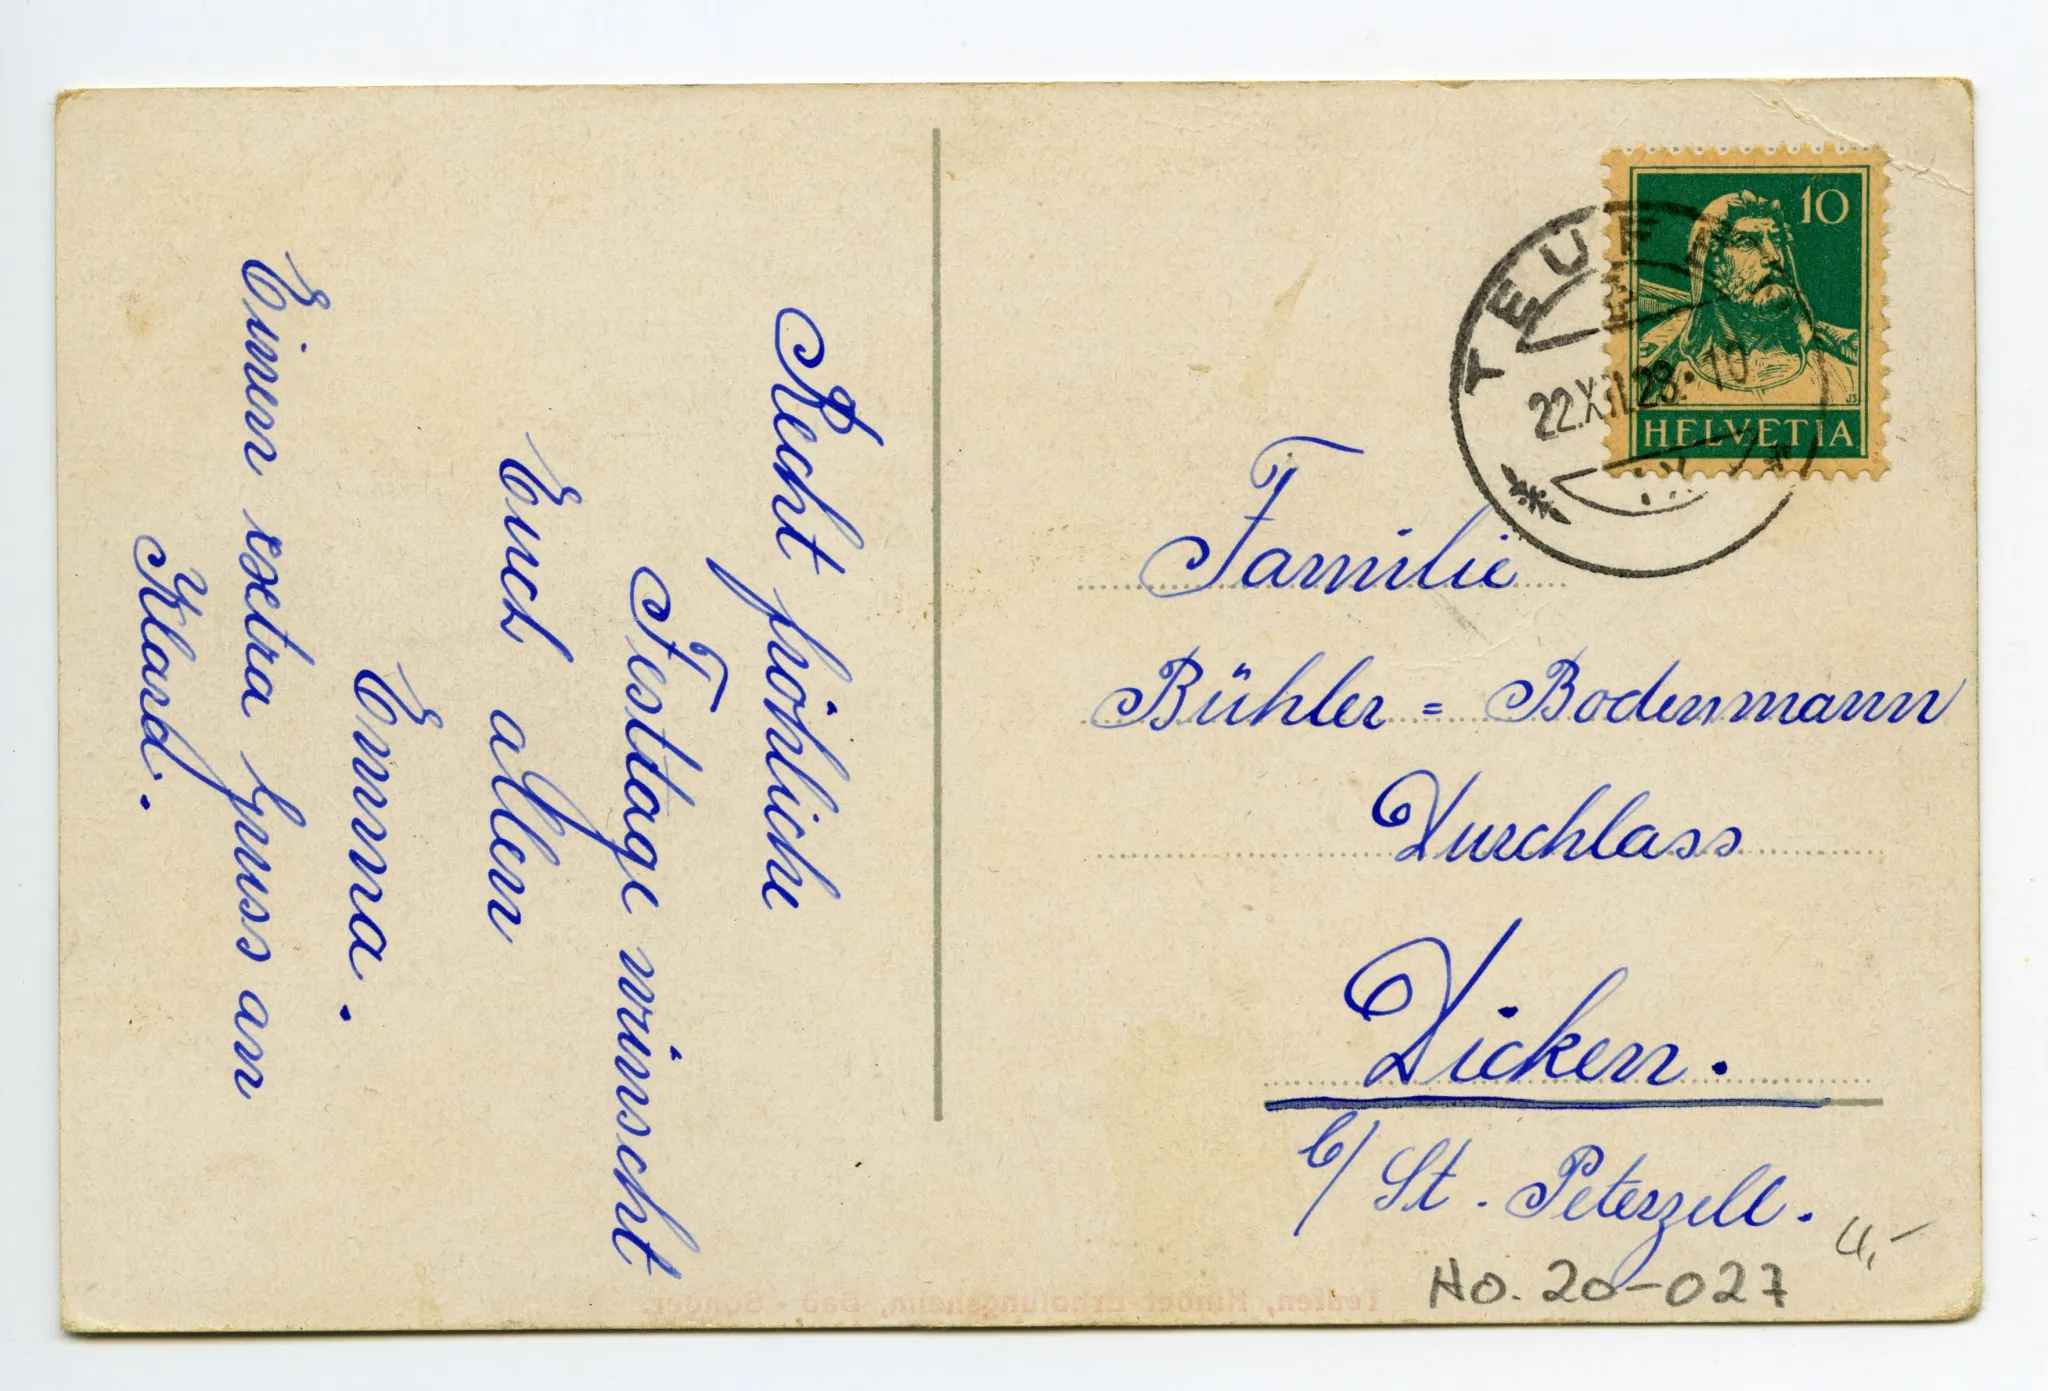 Recht fröhliche
Festtage wünscht
Euch allen
Emma.
Einen extra Gruss an
Klard.
10
HELVETIA
TEUFEN
22.XII.28. 10
Familie
Bühler = Bodenmann
Durchlass
Dicken.
b/ St. Peterzell.
No. 20-027
4,-
Teufen, Kinder-Erholungsheim, Bad - Sonder.